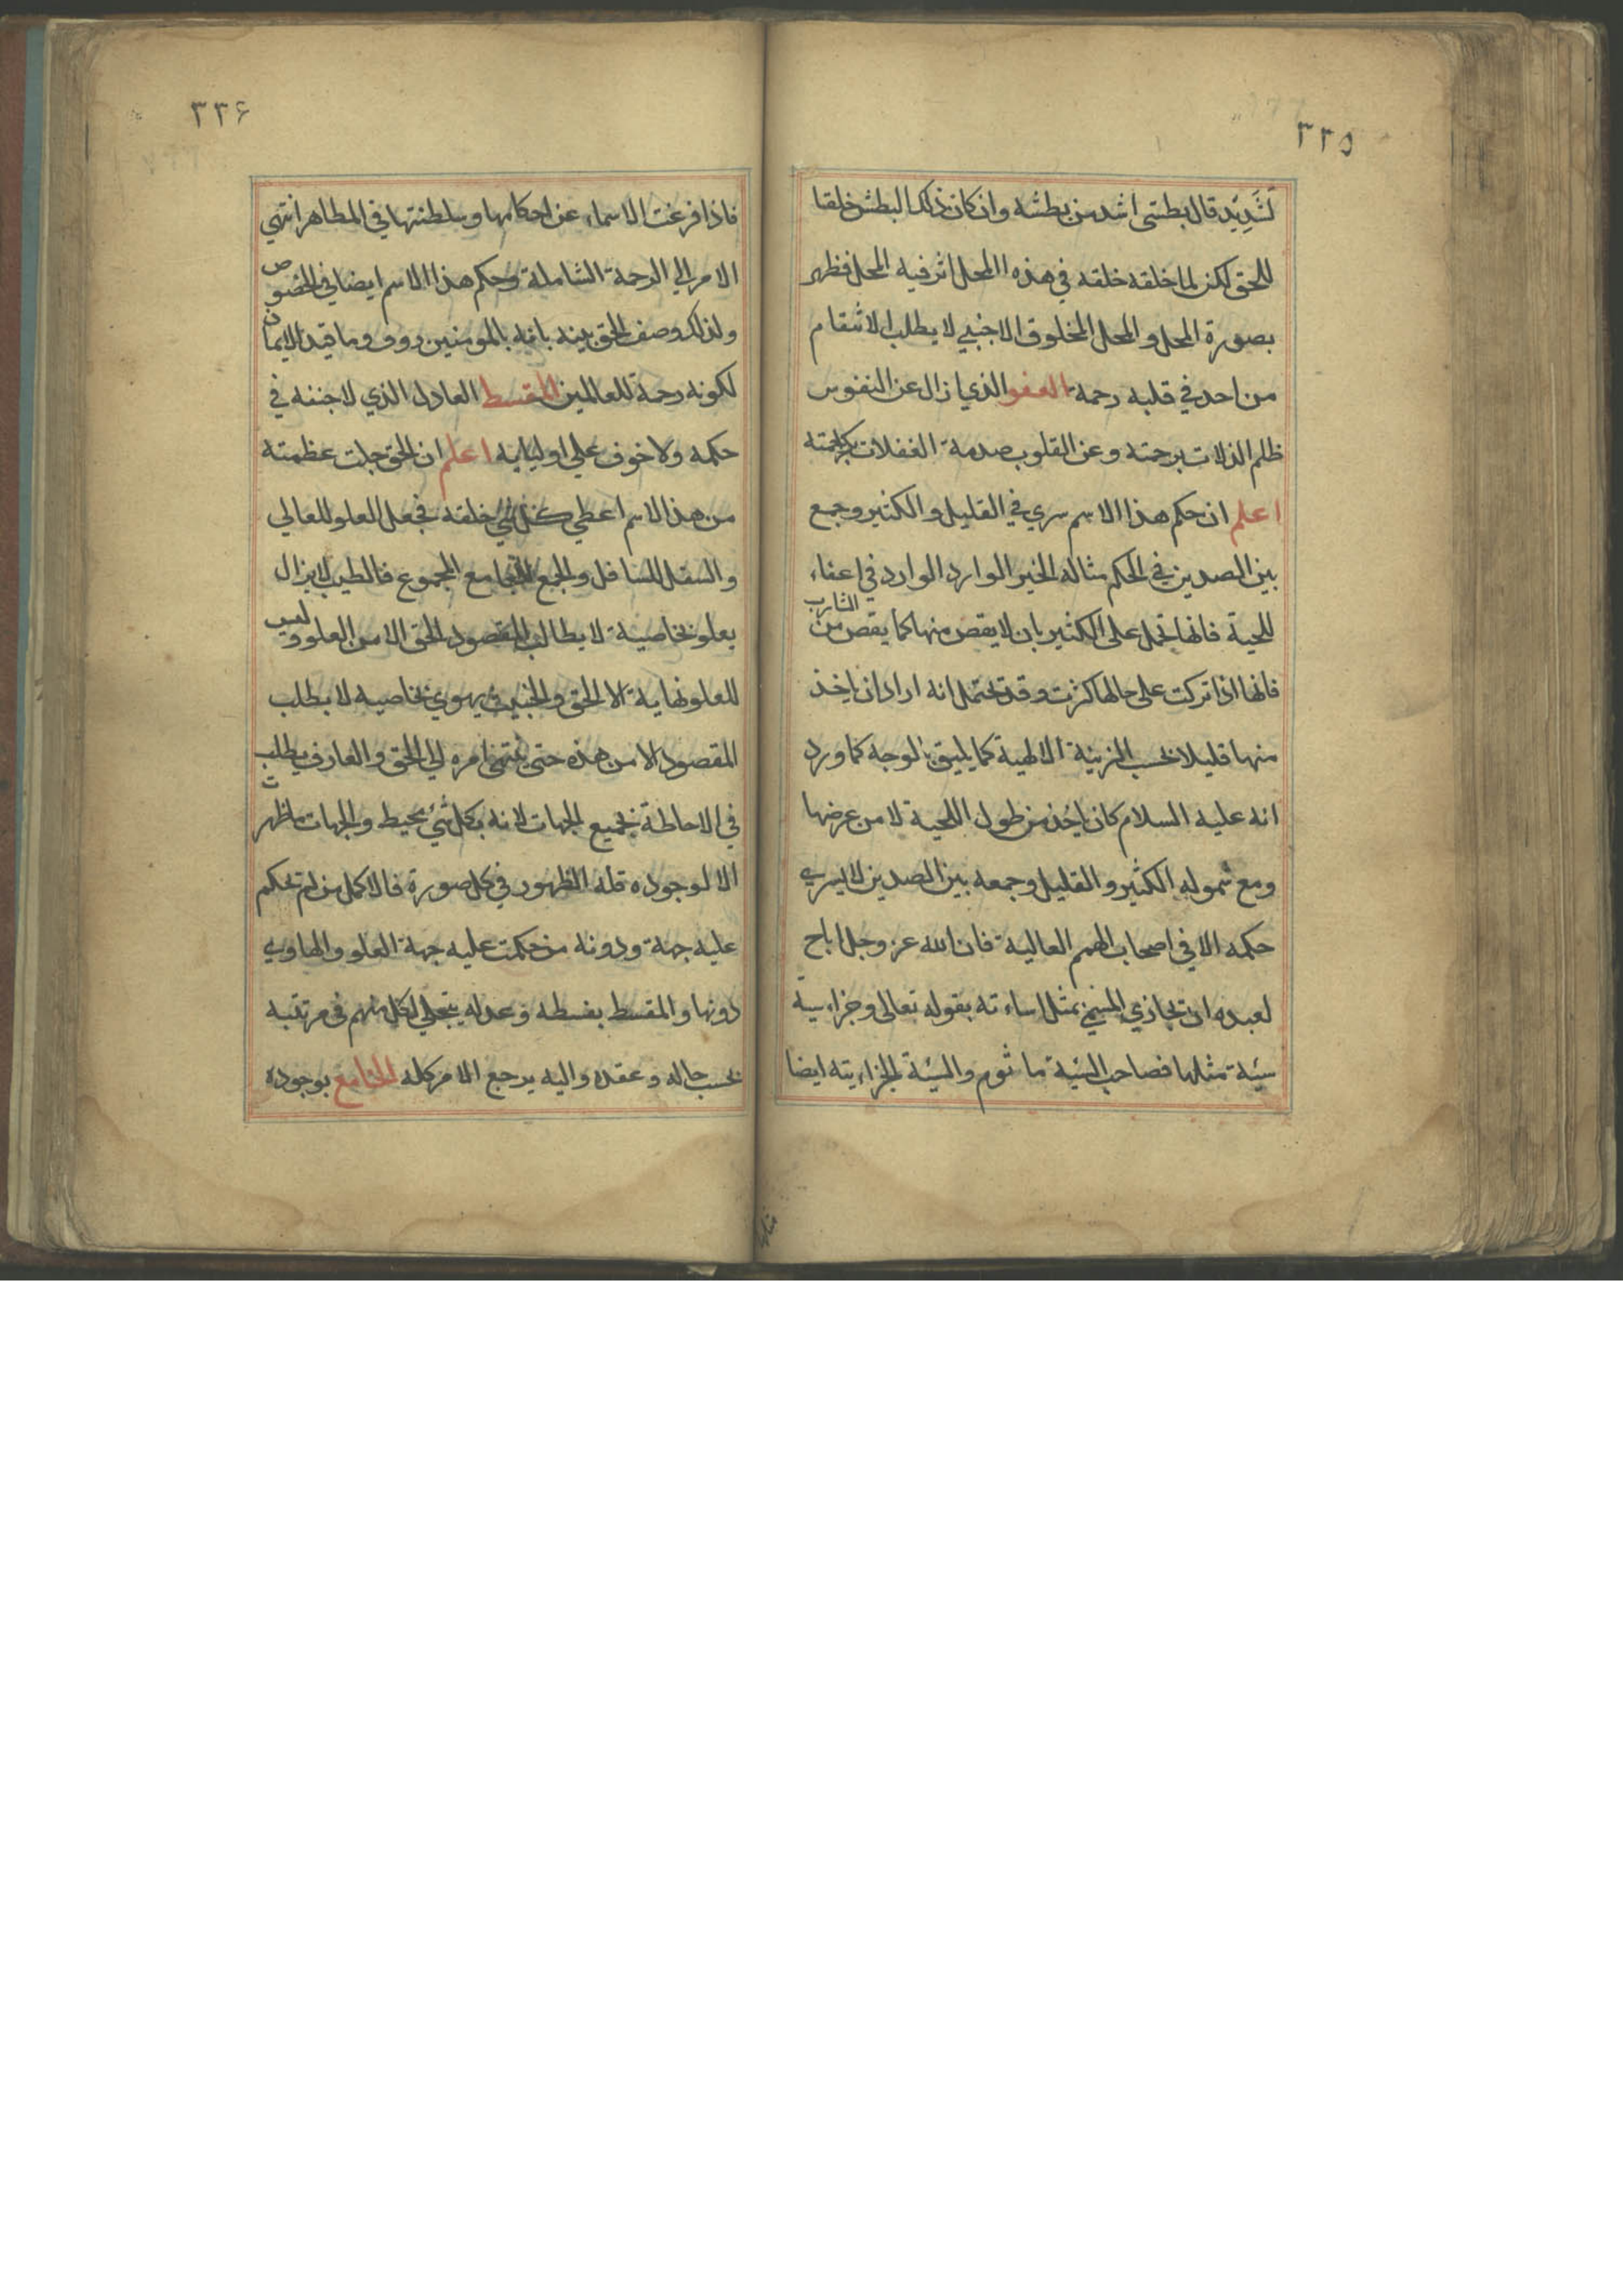 ٣٣٥
لَشَدِيْد قال بطشى اشد من بطشه وان كان ذلك البطش خلقا
للحق لكن لما خلقه خلقه في هذه المحل اثر فيه المحل فظهر
بصورة المحل و المحل المخلوق الاجنبي لا يطلب الانتقام
من احد في قلبه رحمة العفو الذي ازال عن النفوس
ظلم الذلات برحمته وعن القلوب صدمة الغفلات بكرامته
اعلم ان حكم هذا الاسم سري في القليل و الكثير و جمع
بين الضدين في الحكم مثاله الخبر الوارد الوارد في اعفاء
للحية فانها تحمل على الكثير بان لا يقص منها كما يقص من الشارب
فانها اذا تركت على حالها كثرت وقد تحتمل انه اراد ان ياخذ
منها قليلا بحسب الزينة الالهية كما يليق بالوجه كما ورد
انه عليه السلام كان ياخذ من طول اللحية لا من عرضها
ومع شموله الكثير و القليل وجمعه بين الضدين لا يسري
حكمه الا في اصحاب الهمم العالية فان الله عز وجل اباح
لعبده ان تجازي المسئ بمثل اساءته بقوله تعالى وجزاء سية
سيئة مثلها فصاحب السيئة ماثوم والسيئة الجزاءيته ايضا
٣٣۶
فاذا فرغت الاسماء عن احكامها وسلطنتها في المظاهر انتهي
الامر الي الرحمة الشاملة وحكم هذا الاسم ايضا في الخصوص
ولذلك وصف الحق بينه بانه بالمومنين روف وما قيد الايمان
لكونه رحمة للعالمين المقسط العادل الذي لا جنفه في
حكمه ولا خوف علي اوليايه اعلم ان الحق جلت عظمته
من هذا الاسم اعطي كل شي خلقه فجعل العلو للعالي
والسفل للسافل والجمع للجامع المجموع فالطيب لا يزال
يعلو بخاصية لا يطالب المقصود الحق الا من العلو وليس
للعلو نهاية الا الحق والخبيث يهوي بخاصيه لا يطلب
المقصود الا من هذه حتى ينتهي امره الي الحق و العارف يطلب
في الاحاطة بجميع الجهات لانه بكل شئ محيط والجهات ما ظهرت
الا لوجوده فله الظهور في كل صورة فالاكمل من لم تحكم
عليه جهة ودونه من حكمت عليه جهة العلو والهاوي
دونها والمقسط بقسطه وعدله يتجلي لكل منهم في مرتبته
بحسب حاله وعقده واليه يرجع الامر كله الجامع بوجوده